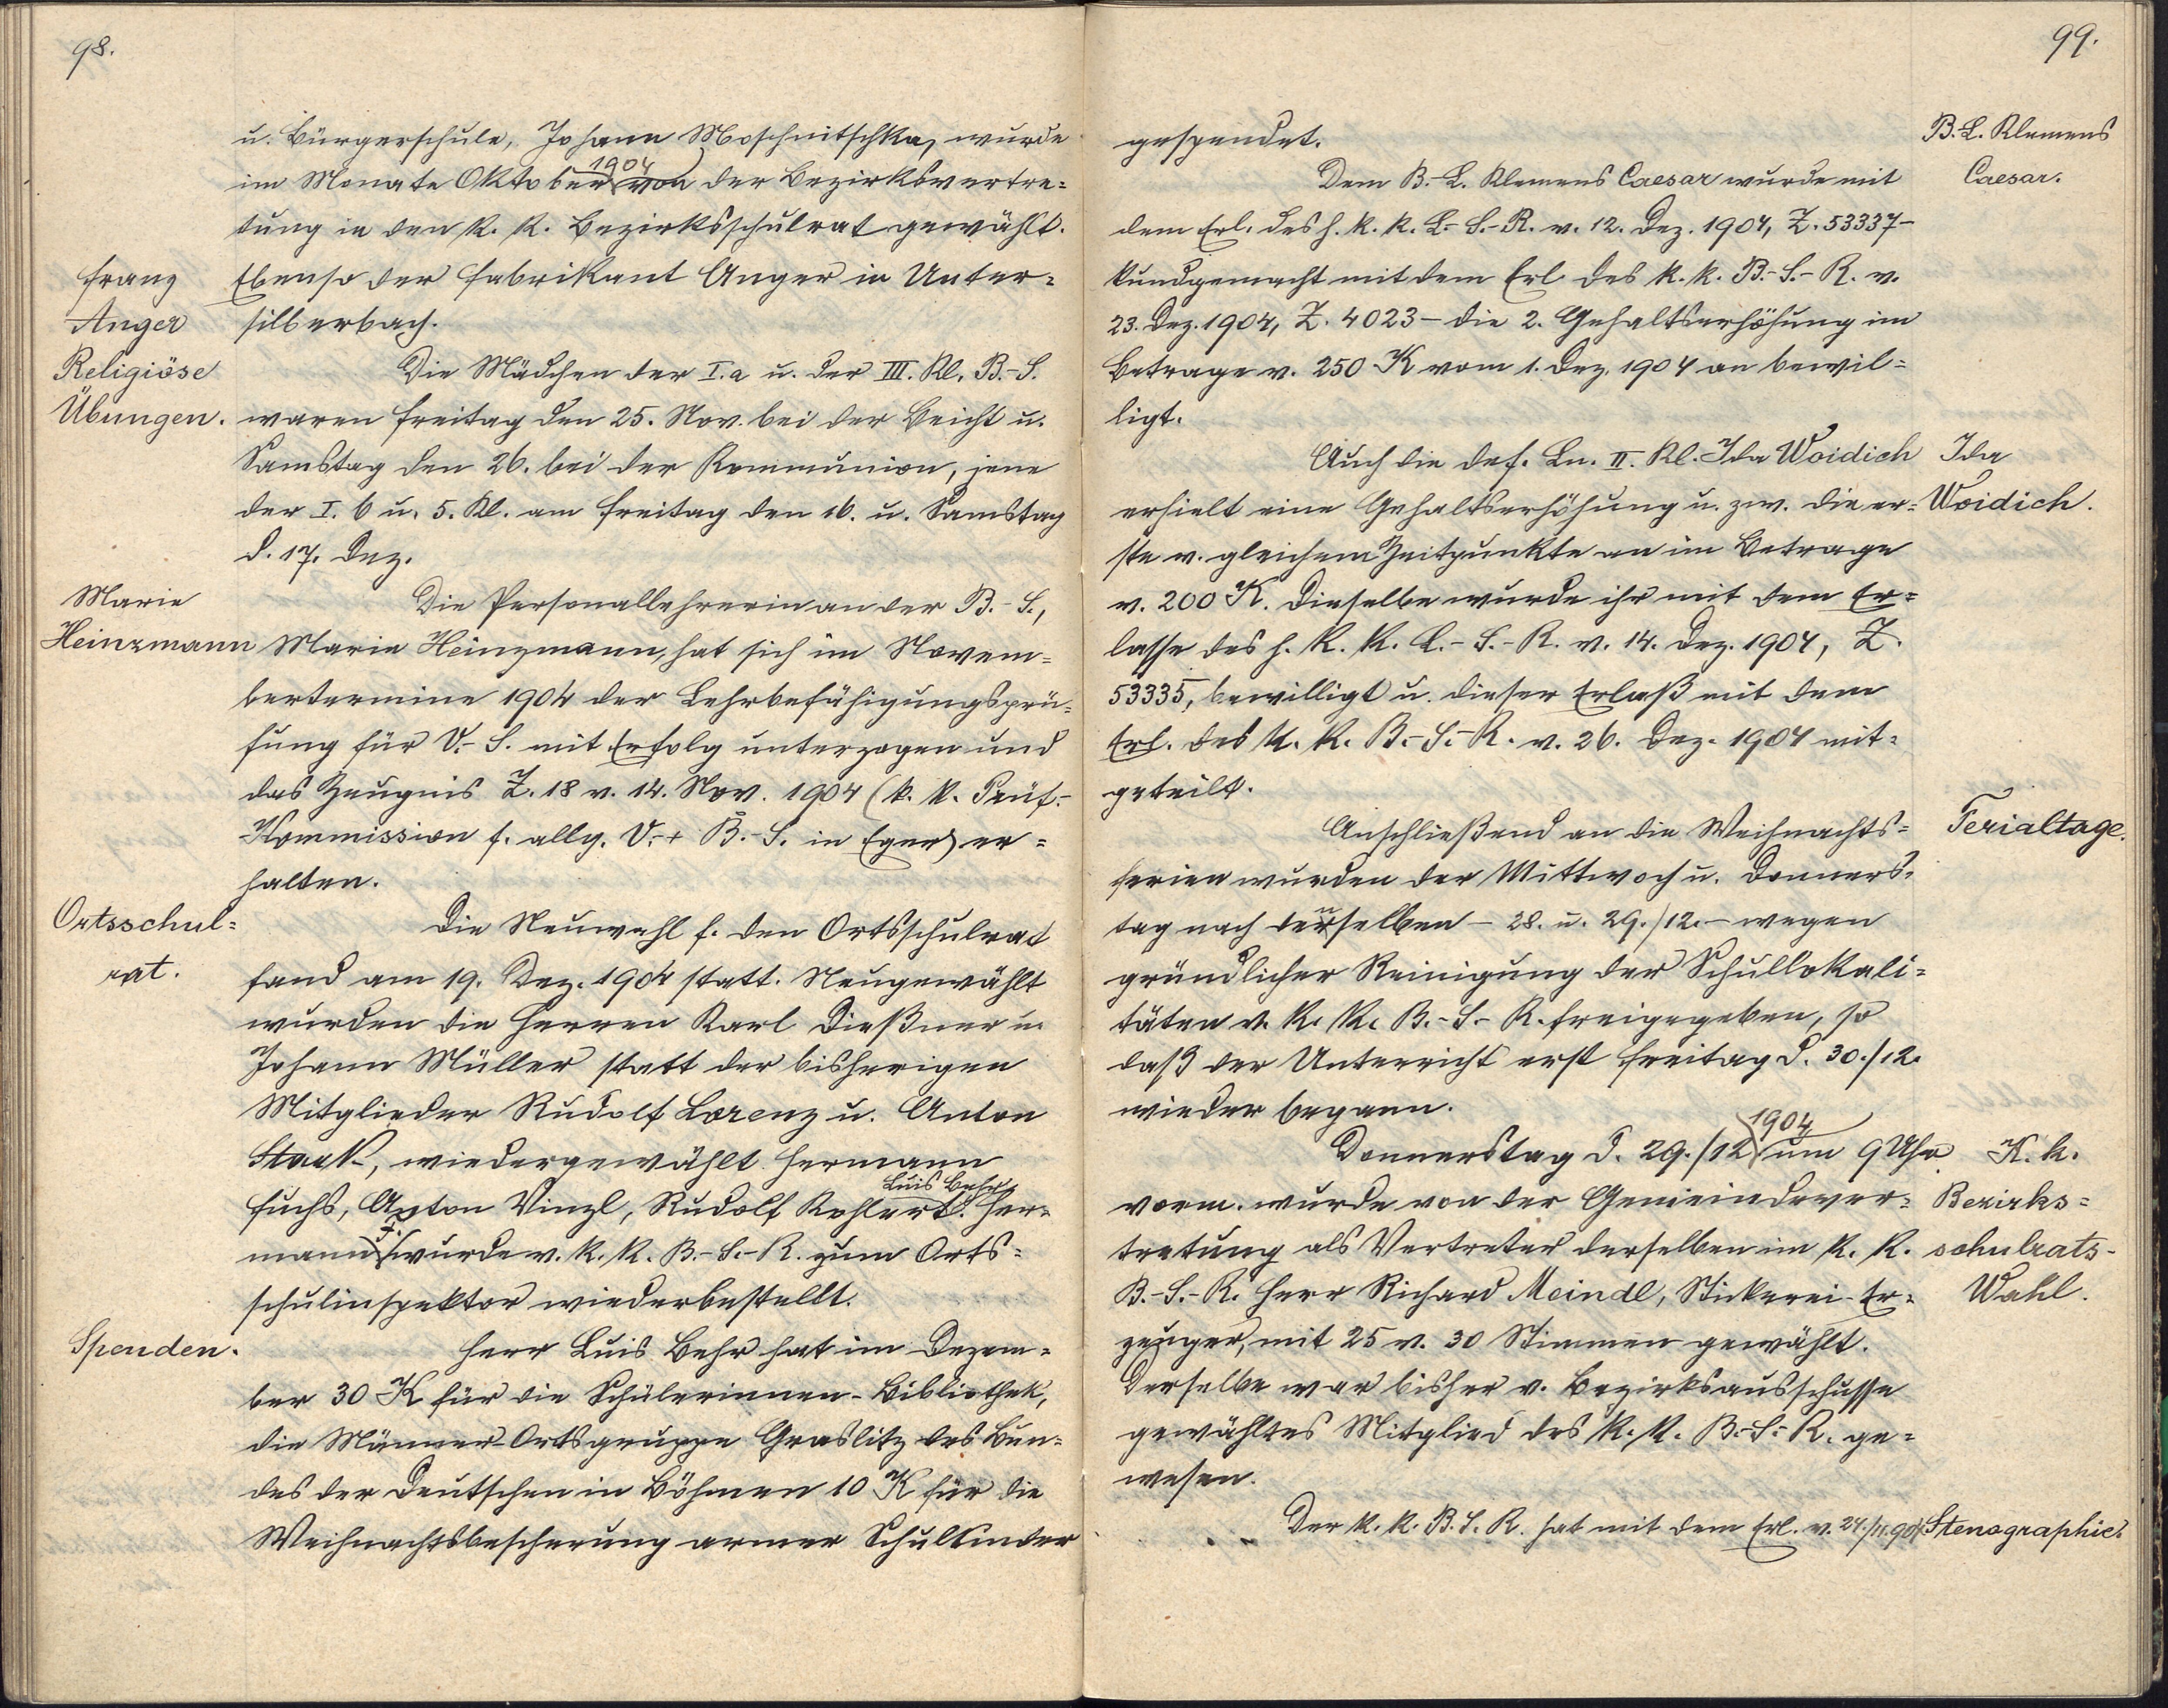 98.
u. Bürgerschule, Johann Moschnitschka, wurde
im Monate Oktober 1904 von der Bezirksvertre=
tung in den k. k. Bezirksschulrat gewählt.
Franz
Anger
Ebenso der Fabrikant Anger in Unter=
silberbach.
Religiöse
Übungen.
Die Mädchen der I.a u. der III. Kl. B.-S.
waren Freitag den 25. Nov. bei der Beicht u.
Samstag den 26. bei der Kommunion, jene
der I. b u. 5. Kl. am Freitag den 16. u. Samstag
d. 17. Dez.
Marie
Heinzmann
Die Personallehrerin an der B.-S.,
Marie Heinzmann, hat sich im Novem=
bertermine 1904 der Lehrbefähigungsprü=
fung für V.-S. mit Erfolg unterzogen und
das Zeugnis Z. 18 v. 14. Nov. 1904 (k. k. Prüf.-
Kommission f. allg. V.- + B.-S. in Eger) er=
halten.
Ortsschul=
rat.
Die Neuwahl f. den Ortsschulrat
fand am 19. Dez. 1904 statt. Neugewählt
wurden die Herren Karl Dießner u.
Johann Müller statt der bisherigen
Mitglieder Rudolf Lorenz u. Anton
Stark, wiedergewählt Hermann
Fuchs, Anton Vinzl, Rudolf Kohlert. Luis Behr. Her=
mann F. wurde v. k. k. B.-S.-R. zum Orts=
schulinspektor wiederbestellt.
Spenden.
Herr Luis Behr hat im Dezem=
ber 30 K für die Schülerinnen-Bibliothek,
die Männer-Ortsgruppe Graslitz des Bun=
des der Deutschen in Böhmen 10 K für die
Weihnachtsbescherung armer Schulkinder
99.
gespendet.
B.-L. Klemens
Caesar.
Dem B.-L. Klemens Caesar wurde mit
dem Erl. des h. k. k. L.-S.-R. v. 12. Dez. 1904, Z. 53337 –
kundgemacht mit dem Erl. des k. k. B.-S.-R. v.
23. Dez. 1904, Z. 4023 – die 2. Gehaltserhöhung im
Betrage v. 250 K vom 1. Dez. 1904 an bewil=
ligt.
Ida
Woidich.
Auch die def. Ln. II. Kl. Ida Woidich
erhielt eine Gehaltserhöhung u. zw. die er=
ste v. gleichem Zeitpunkte an im Betrage
v. 200 K. Dieselbe wurde ihr mit dem Er=
lasse des h. k. k. L.-S.-R. v. 14. Dez. 1904, Z.
53335, bewilligt u. dieser Erlaß mit dem
Erl. des k. k. B.-S.-R. v. 26. Dez. 1904 mit=
geteilt.
Ferialtage.
Anschließend an die Weihnachts=
ferien wurden der Mittwoch u. Donners=
tag nach denselben – 28. u. 29./12. – wegen
gründlicher Reinigung der Schullokali=
täten v. k. k. B.-S.-R. freigegeben, so
daß der Unterricht erst Freitag d. 30./12.
wieder begann.
K. k.
Bezirks=
schulrats-
Wahl.
Donnerstag d. 29./12 1904 um 9 Uhr
vorm. wurde von der Gemeindever=
tretung als Vertreter derselben im k. k.
B.-S.-R. Herr Richard Meindl, Stickerei-Er=
zeuger, mit 25 v. 30 Stimmen gewählt.
Derselbe war bisher v. Bezirksausschusse
gewähltes Mitglied des k. k. B.-S.-R. ge=
wesen.
Der k. k. B. S. R. hat mit dem Erl. v. 24./11. 904 Stenographie.